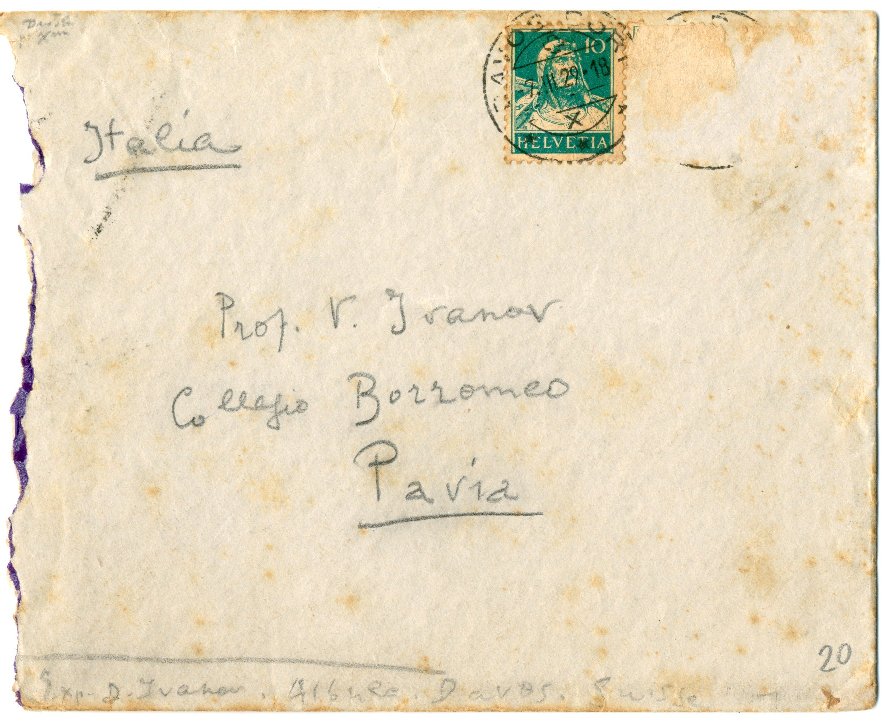 10
HELVETIA
DAVOS
29.-18
X
Italia
Prof. V. Ivanov
Collegio Borromeo
Pavia
20
Exp. D. Ivanov. Albula. Davos. Suisse